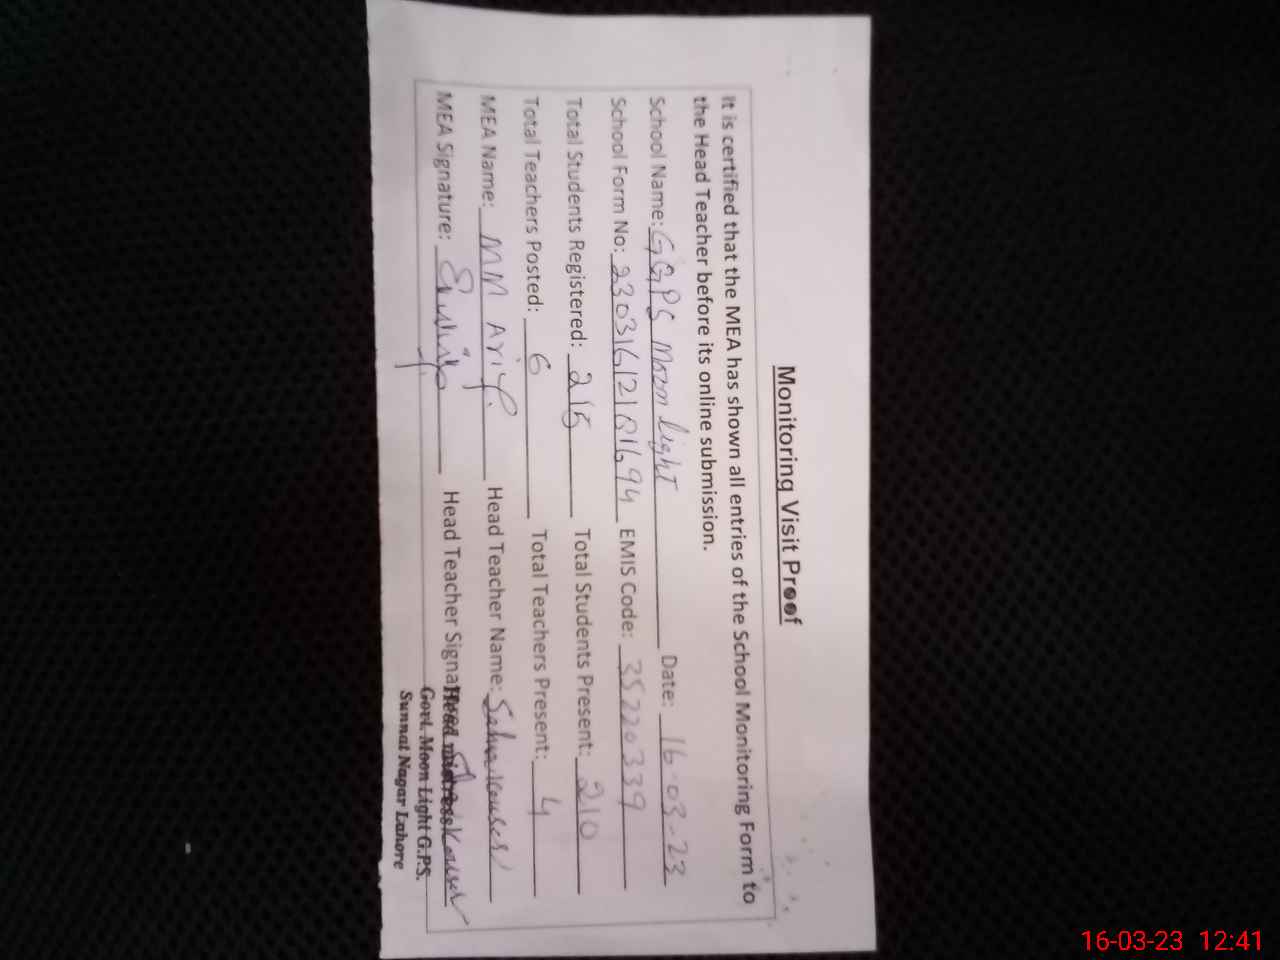 Monitoring Visit Proof
It is certified that the MEA has shown all entries of the School Monitoring Form to
the Head Teacher before its online submission.
School Name: GGPS Moon light Date: 16-03-23
School Form No: EMIS Code: 35220339
Total Students Registered: 215 Total Students Present: 210
Total Teachers Posted: 6 Total Teachers Present: 4
MEA Name: MM Arif. Head Teacher Name: Kouser
MEA Signature: Head Teacher Kouser
Head mistress
Govt. Moon Light G.P.S.
Sunnat Nagar Lahore
16-03-23 12:41